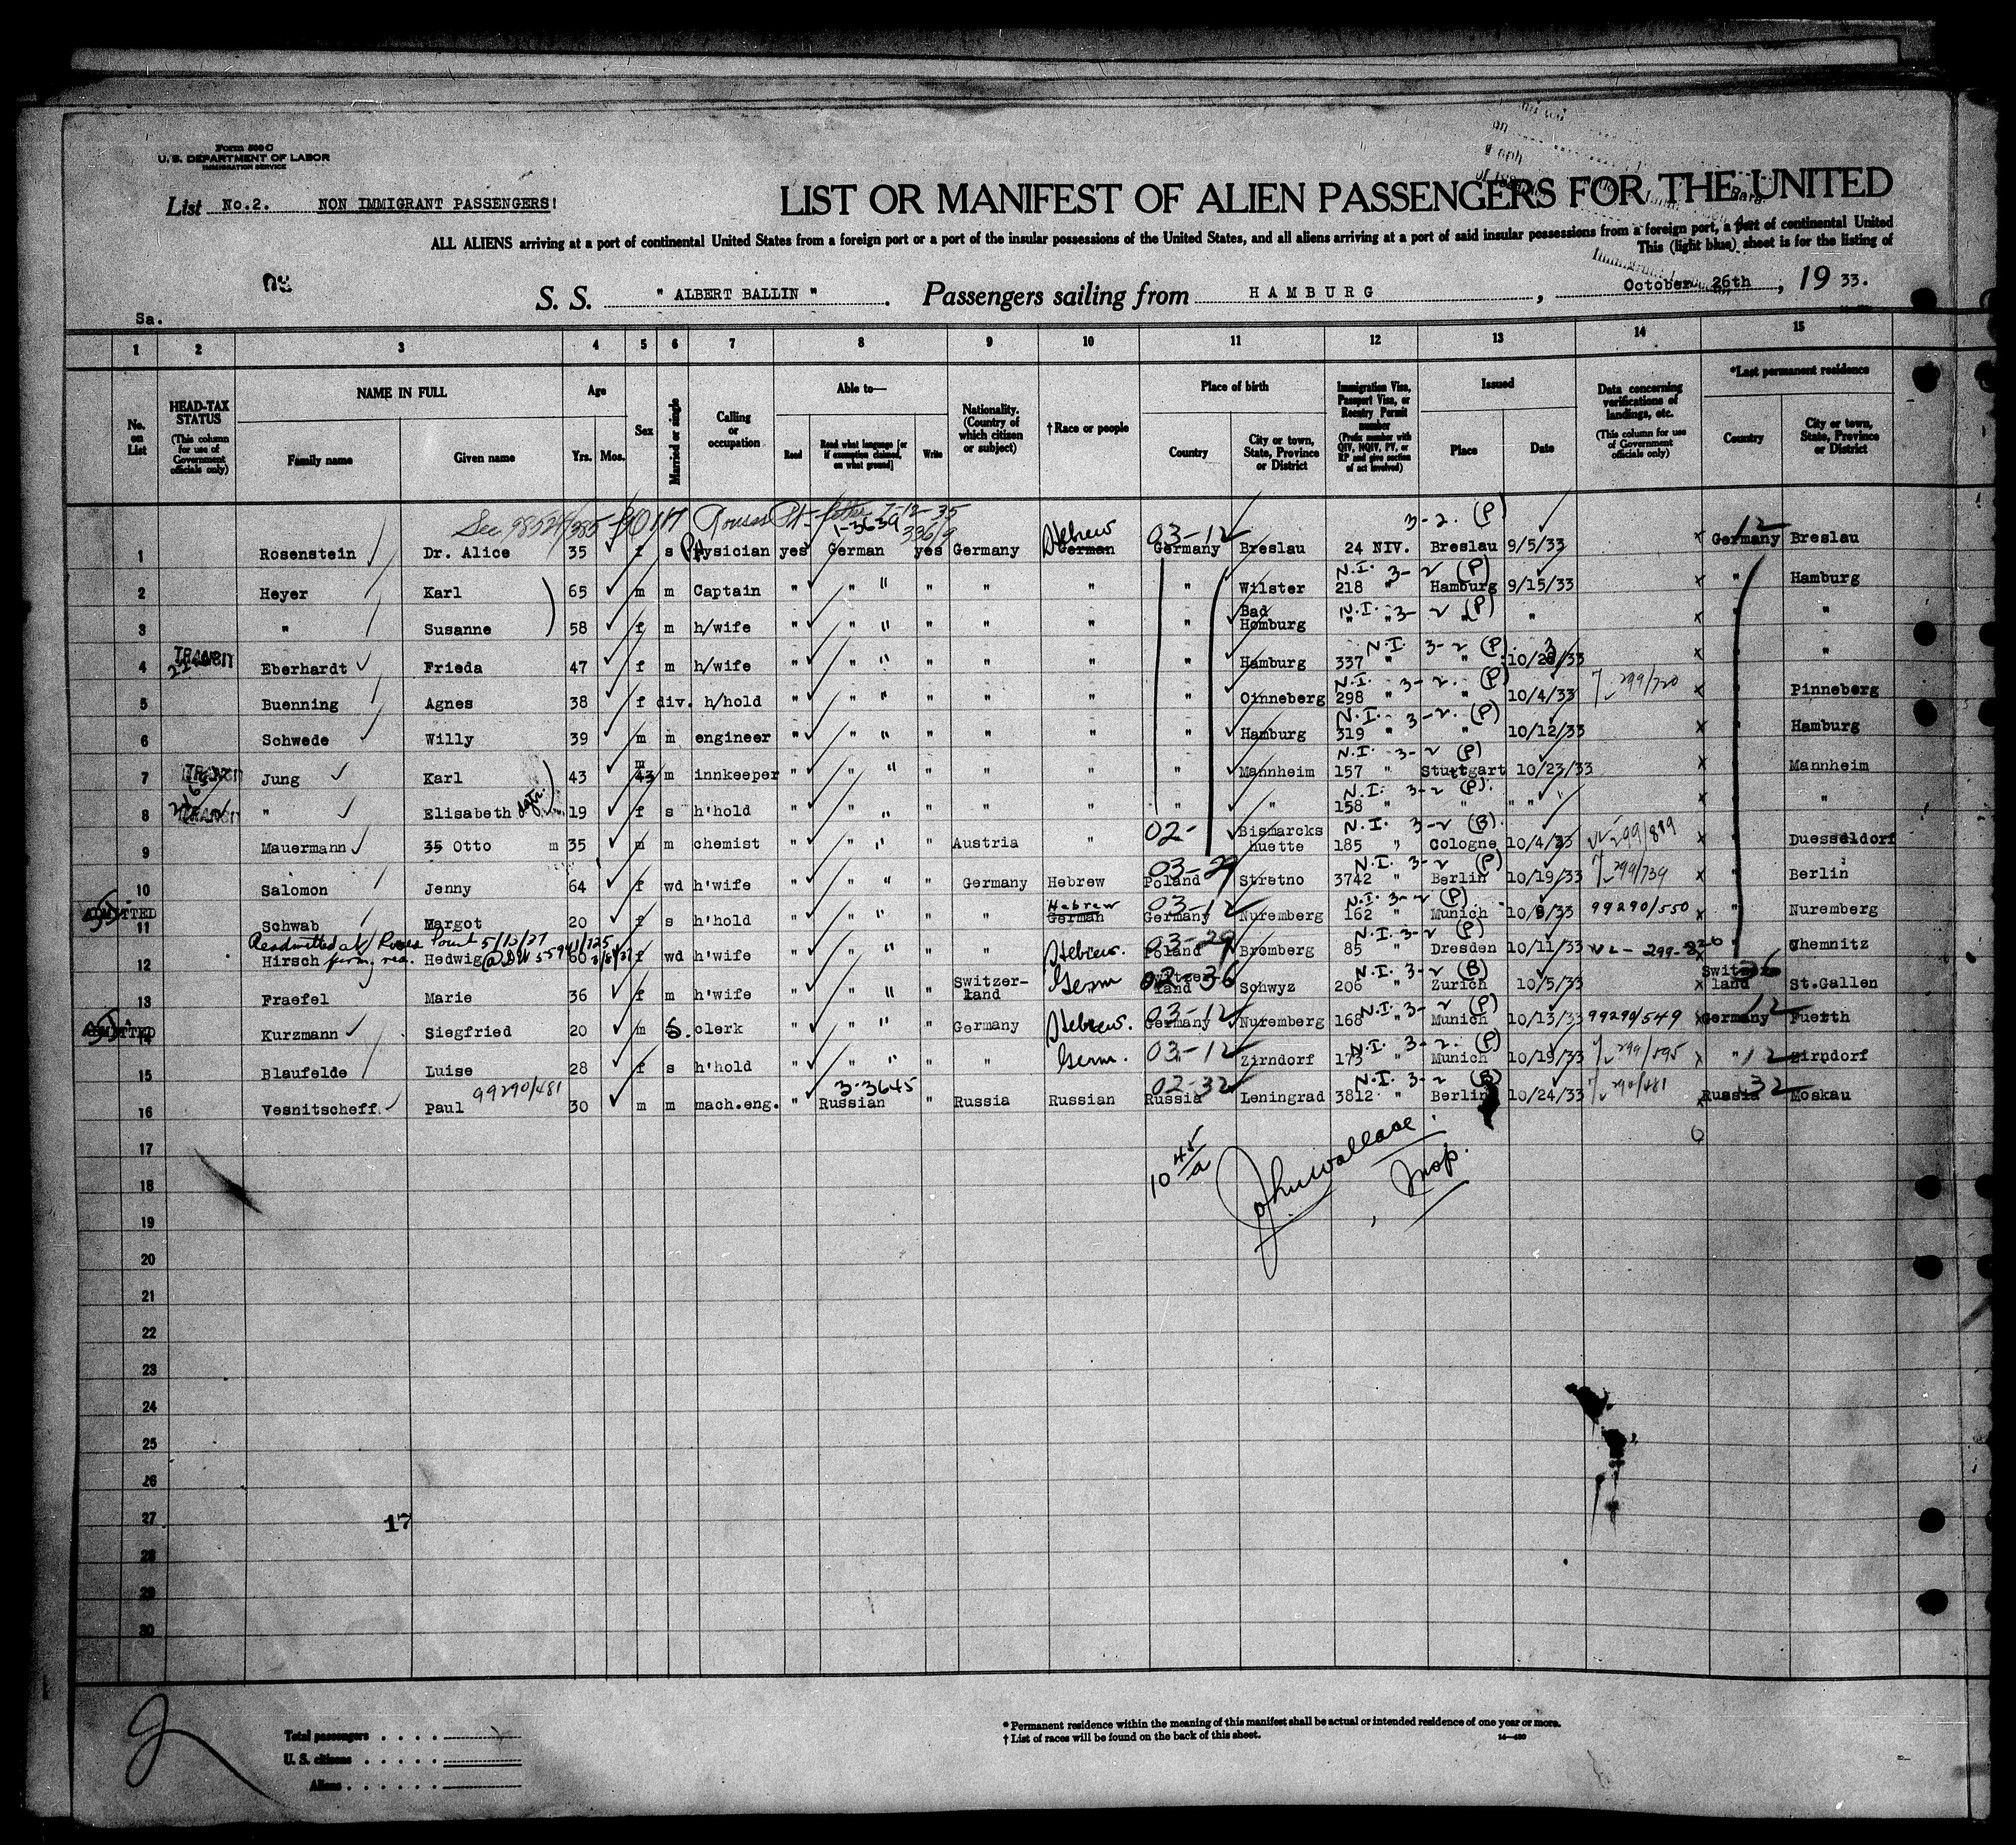 Form 500 C
U. S. DEPARTMENT OF LABOR
IMMIGRATION SERVICE
List No.2. NON IMMIGRANT PASSENGERS!
LIST OR MANIFEST OF ALIEN PASSENGERS FOR THE UNITED
ALL ALIENS arriving at a port of continental United States from a foreign port or a port of the insular possessions of the United States, and all aliens arriving at a port of said insular possessions from a foreign port, a port of continental United
This (light blue) sheet is for the listing of
S. S. " ALBERT BALLIN ". Passengers sailing from HAMBURG, October 26th, 19 33.
Sa.
1 2 3 4 5 6 7 8 9 10 11 12 13 14 15
No. on List
HEAD-TAX STATUS (This column for use of Government officials only)
NAME IN FULL Family name Given name
Age Yrs. Mos.
Sex
Married or single
Calling or occupation
Able to— Read Read what language [or if exemption claimed, on what ground] Write
Nationality. (Country of which citizen or subject)
† Race or people
Place of birth Country City or town, State, Province or District
Immigration Visa, Passport Visa, or Reentry Permit number (Prefix number with QIV, NQIV, PV, or RP and give section of act involved)
Issued Place Date
Data concerning verifications of landings, etc. (This column for use of Government officials only)
*Last permanent residence Country City or town, State, Province or District
See 98524/385 Rouses Pt - letter 7-12-35
1-3639 33619 Hebrew 03-12 3-2. (P) 12
1 Rosenstein Dr. Alice 35 f s Physician yes German yes Germany German Germany Breslau 24 NIV. Breslau 9/5/33 x Germany Breslau
N.I. 3-2 (P)
2 Heyer Karl 65 m m Captain " " " " " " " Wilster 218 " Hamburg 9/15/33 x " Hamburg
Bad N.I. 3-2 (P)
3 " Susanne 58 f m h/wife " " " " " " " Homburg " " " " x " "
TRANSIT N.I. 3-2 (P)
4 Eberhardt Frieda 47 f m h/wife " " " " " " " Hamburg 337 " " 10/23/33 x " "
N.I. 3-2. (P)
5 Buenning Agnes 38 f div. h/hold " " " " " " " Oinneberg 298 " " 10/4/33 299/720 x " Pinneberg
N.I. 3-2. (P)
6 Schwede Willy 39 m m engineer " " " " " " " Hamburg 319 " " 10/12/33 x " Hamburg
TRANSIT m N.I. 3-2 (P)
7 Jung Karl 43 43 m innkeeper " " " " " " " Mannheim 157 " Stuttgart 10/23/33 x " Mannheim
N.I. 3-2 (P).
8 TRANSIT " Elisabeth dgtr. 19 f s h'hold " " " " " " " 158 " " " " " x " "
02- Bismarcks N.I. 3-2 (B).
9 Mauermann 35 Otto m 35 m m chemist " " " " Austria " huette 185 " Cologne 10/4/33 299/819 x " Duesseldorf
03-29 N.I. 3-2 (P)
10 Salomon Jenny 64 f wd h'wife " " " " Germany Hebrew Poland Stretno 3742 " Berlin 10/19/33 299/739 x " Berlin
ADMITTED Hebrew 03-12 N.I. 3-2 (P)
11 Schwab Margot 20 f s h'hold " " " " " German Germany Nuremberg 162 " Munich 10/9/33 99290/550 x " Nuremberg
Readmitted at Rouses Point 5/13/37 03-29 N.I. 3-2 (P)
12 Hirsch perm. res. Hedwig 60 f wd h'wife " " " " " Hebrew. Poland Bromberg 85 " Dresden 10/11/33 VL - 299-826 x " Chemnitz
Switzer- Germ 02-36 Switzer N.I. 3-2 (B) Switzer
13 Fraefel Marie 36 f m h'wife " " " " land land Schwyz 206 " Zurich 10/5/33 x land St.Gallen
03-12 N.I. 3-2 (P) 12
14 Kurzmann Siegfried 20 m S. clerk " " " " Germany Hebrew. Germany Nuremberg 168 " Munich 10/13/33 99290/549 x Germany Fuerth
Germ. 03-12 N.I. 3-2. (P)
15 Blaufelde Luise 28 f s h'hold " " " " " Zirndorf 173 " Munich 10/19/33 299/595 x " 12 Zirndorf
99290/481 3-3645 02-32 N.I. 3-2 (B) 290/481 32
16 Vesnitscheff. Paul 30 m m mach.eng. " Russian " Russia Russian Russia Leningrad 3812 " Berlin 10/24/33 x Russia Moskau
17
10 45/a John Wallace, Insp.
18
19
20
21
22
23
24
25
26
27 17
28
29
30
Total passengers . . . .
U. S. citizens . . . . .
Aliens . . . . . .
* Permanent residence within the meaning of this manifest shall be actual or intended residence of one year or more.
† List of races will be found on the back of this sheet.
14—430
2